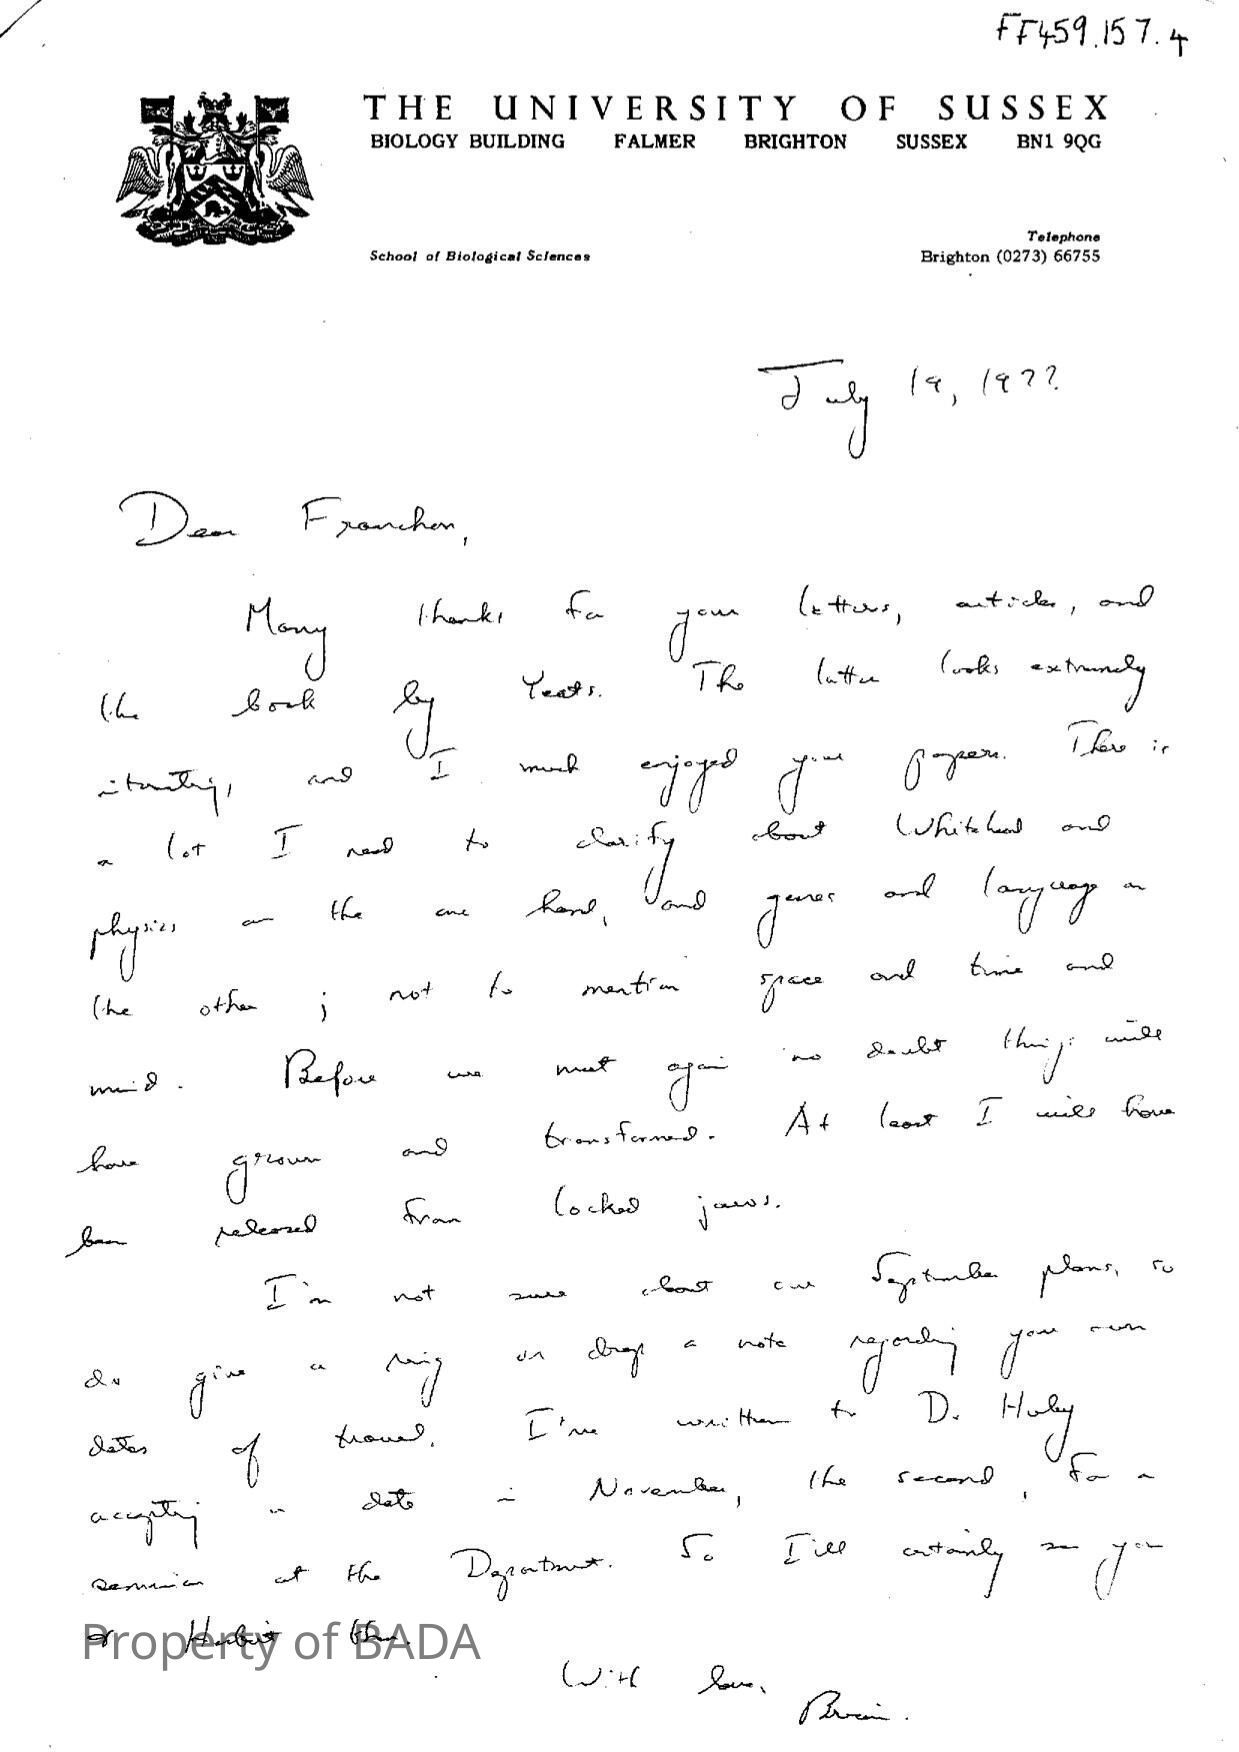 FF459.157.4
THE UNIVERSITY OF SUSSEX
BIOLOGY BUILDING FALMER BRIGHTON SUSSEX BN1 9QG
Telephone
School of Biological Sciences Brighton (0273) 66755
July 19, 1977
Dear Franchon,
Many thanks for your letters, articles, and
the book by Yeats. The latter looks extremely
interesting, and I much enjoyed your papers. There is
a lot I need to clarify about Whitehead and
physics on the one hand, and genes and language on
the other; not to mention space and time and
mind. Before we meet again no doubt things will
have grown and transformed. At least I will have
been released from locked jaws.
I'm not sure about our September plans, so
do give a ring or drop a note regarding your own
dates of travel. I've written to D.
accepting a date in November, the second, for a
seminar at the Department. So I'll certainly see you
& Herbert then.
Property of BADA
With love,
Brian.